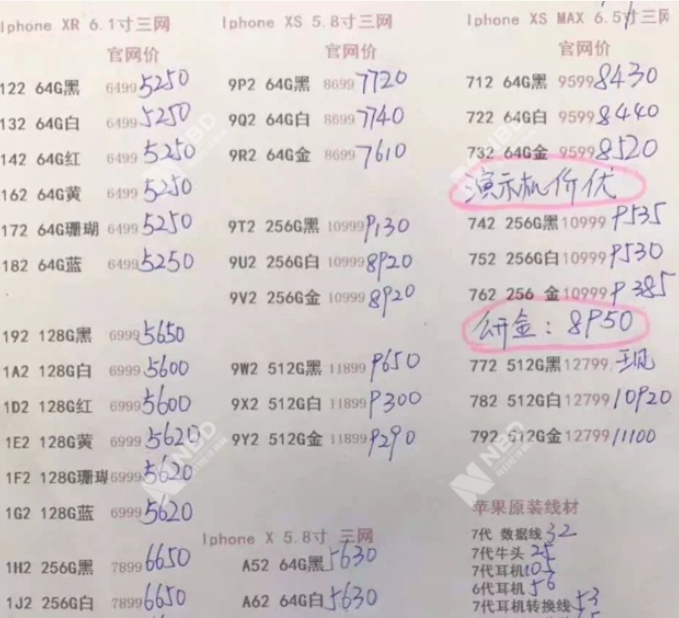 Iphone XR 6.1寸三网
官网价
122 64G黑 6499 5250
132 64G白 6499 5250
142 64G红 6499 5250
162 64G黄 6499 5250
172 64G珊瑚 6499 5250
182 64G蓝 6499 5250
192 128G黑 6999 5650
1A2 128G白 6999 5600
1D2 128G红 6999 5600
1E2 128G黄 6999 5620
1F2 128G珊瑚 6999 5620
1G2 128G蓝 6999 5620
1H2 256G黑 7899 6650
1J2 256G白 7899 6650
Iphone XS 5.8寸三网
官网价
9P2 64G黑 8699 7720
9Q2 64G白 8699 7740
9R2 64G金 8699 7610
9T2 256G黑 10999 9130
9U2 256G白 10999 8920
9V2 256G金 10999 8920
9W2 512G黑 11899 9650
9X2 512G白 11899 9300
9Y2 512G金 11899 9290
Iphone X 5.8寸 三网
A52 64G黑 5630
A62 64G白 5630
Iphone XS MAX 6.5寸三网
官网价
712 64G黑 9599 8430
722 64G白 9599 8440
732 64G金 9599 8520
演示机价优
742 256G黑 10999 9535
752 256G白 10999 9530
762 256 金 10999 9385
金: 8950
772 512G黑 12799 现
782 512G白 12799 10920
792 512G金 12799 11100
苹果原装线材
7代 数据线 32
7代牛头 25
7代耳机 105
6代耳机 56
7代耳机转换线 53
NBD